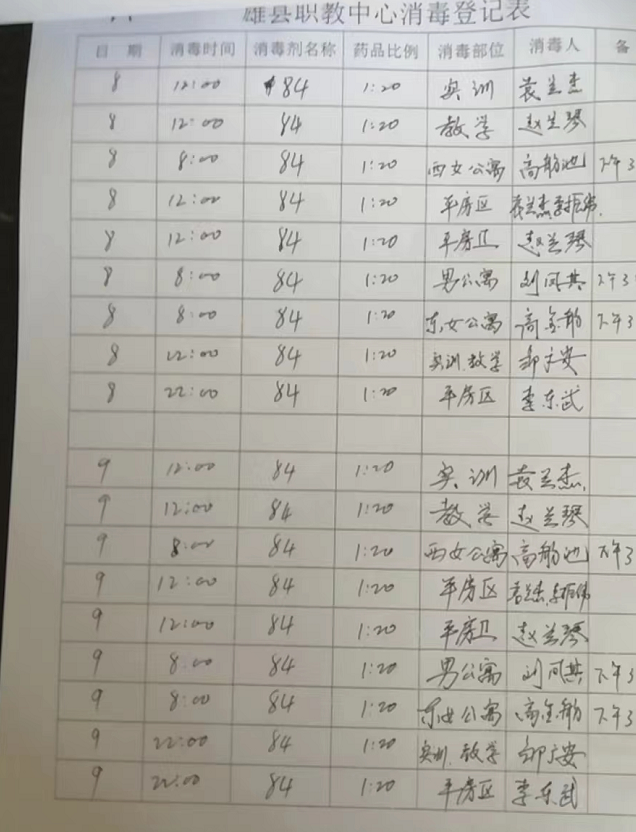 雄县职教中心消毒登记表
日 期 消毒时间 消毒剂名称 药品比例 消毒部位 消毒人 备
8 12:00 84 1:20 实训 袁兰杰
8 12:00 84 1:20 教学 赵兰琴
8 8:00 84 1:20 西女公寓 高舫池 下午3
8 12:00 84 1:20 平房区 袁兰杰
8 12:00 84 1:20 平房卫 赵兰琴
8 8:00 84 1:20 男公寓 刘同共 下午3
8 8:00 84 1:20 东女公寓 高金舫 下午3
8 22:00 84 1:20 实训.教学 邹广安
8 22:00 84 1:20 平房区 李东武
9 12:00 84 1:20 实训 袁兰杰
9 12:00 84 1:20 教学 赵兰琴
9 8:00 84 1:20 西女公寓 高舫池 下午3
9 12:00 84 1:20 平房区
9 12:00 84 1:20 平房卫 赵兰琴
9 8:00 84 1:20 男公寓 刘同共 下午3
9 8:00 84 1:20 东女公寓 高金舫 下午3
9 22:00 84 1:20 实训.教学 邹广安
9 22:00 84 1:20 平房区 李东武